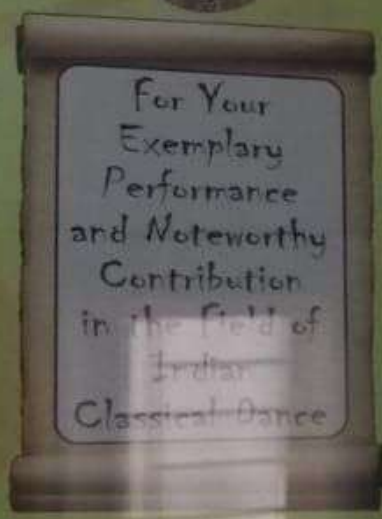 For Your
Exemplary
Performance
and Noteworthy
Contribution
in the Field of
Indian
Classical Dance